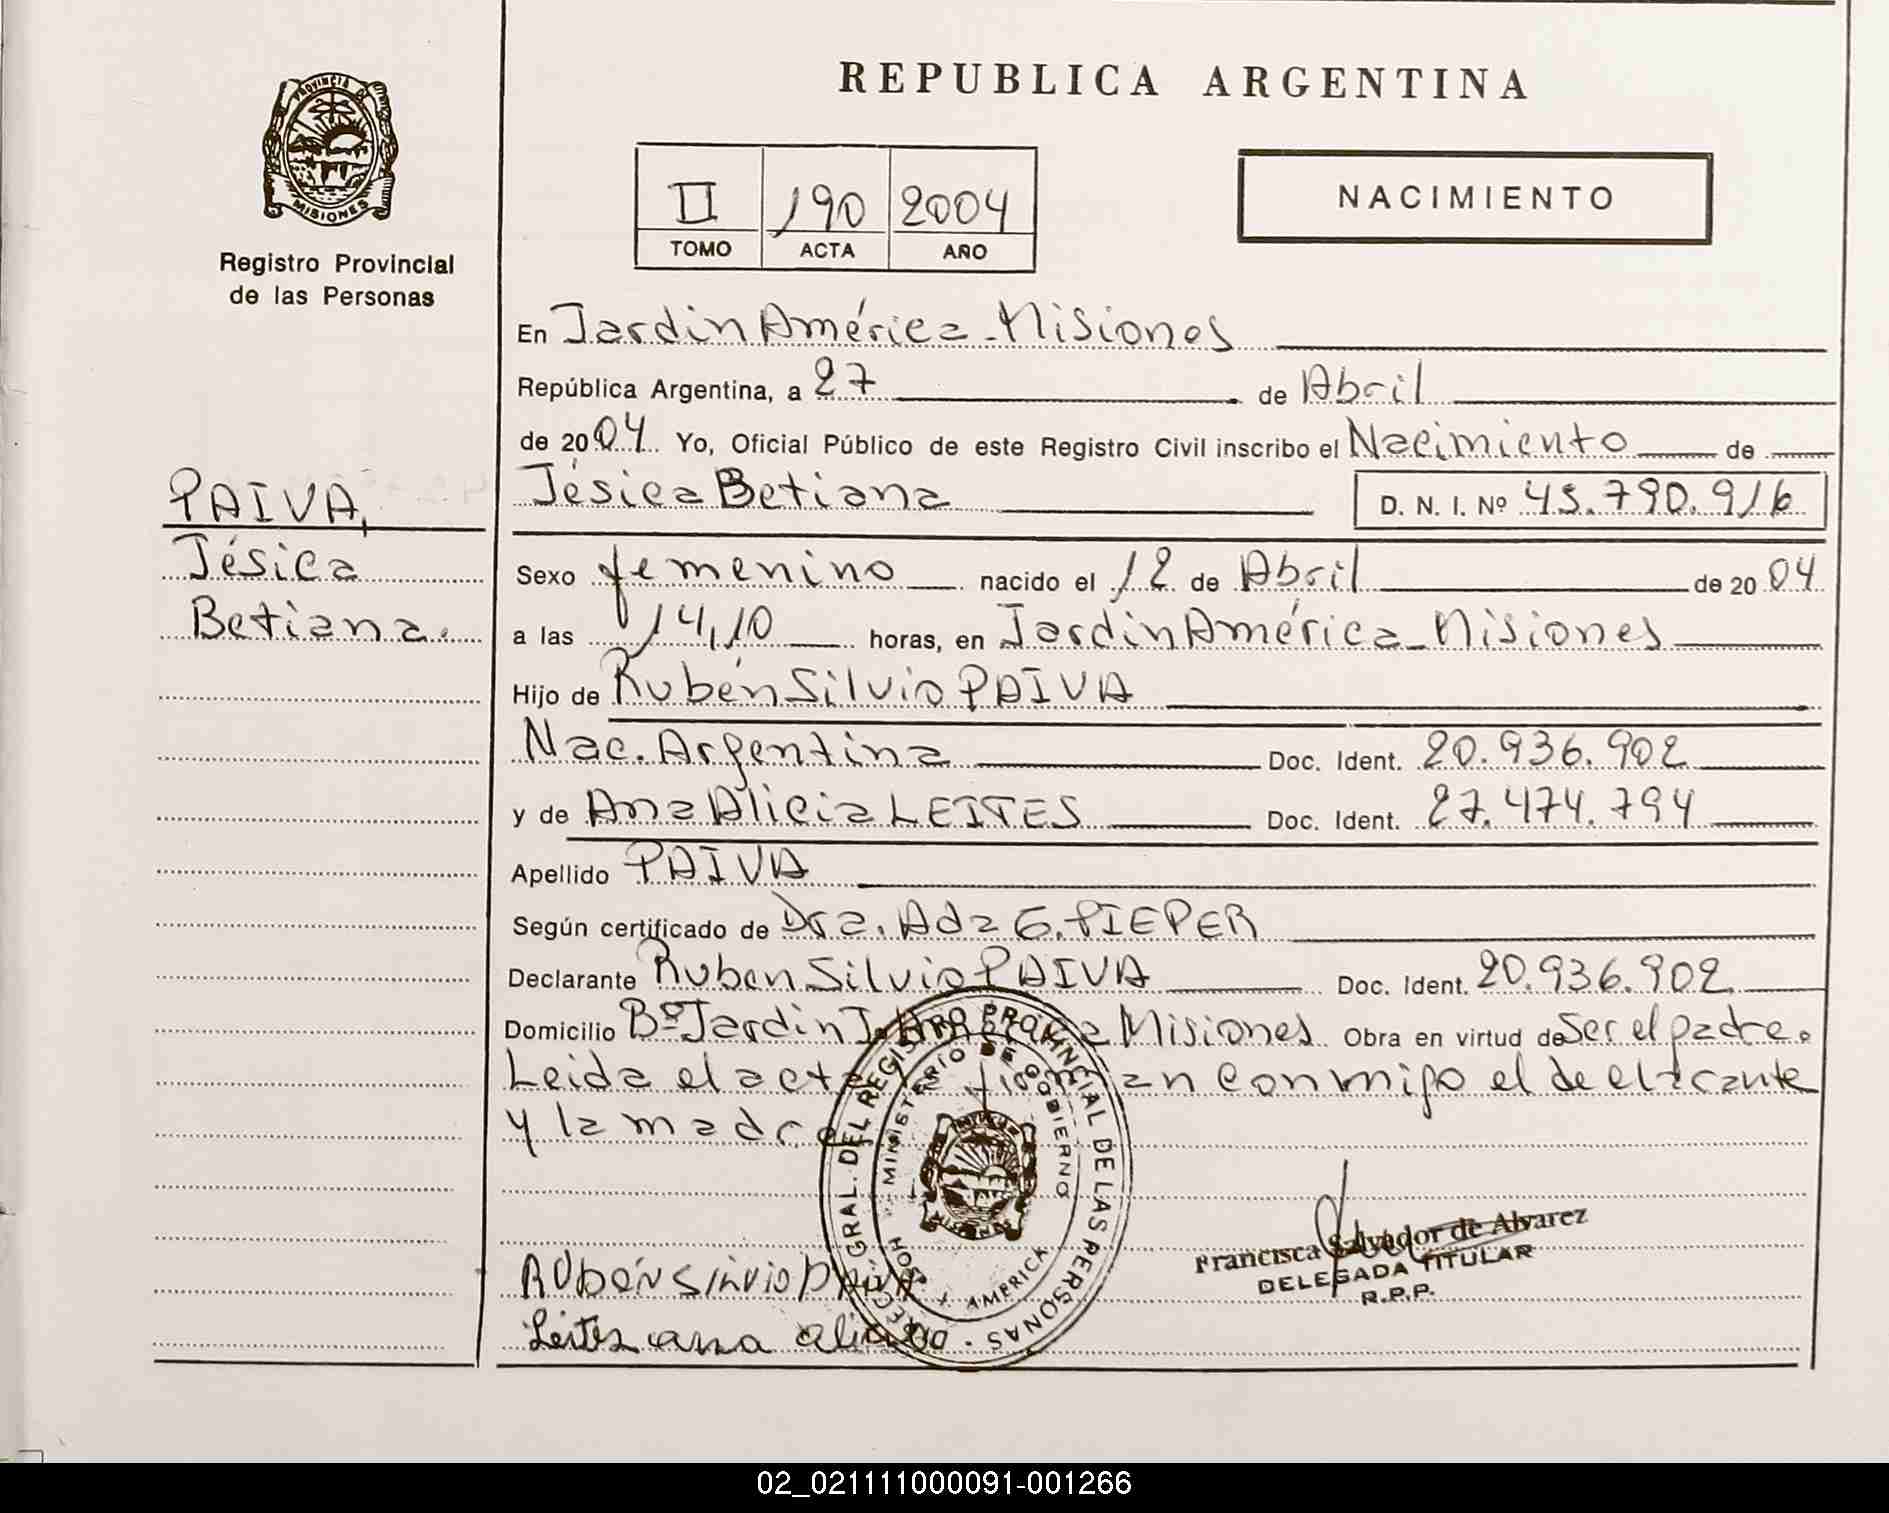 REPUBLICA ARGENTINA
PROVINCIA DE
MISIONES
Registro Provincial
de las Personas
II 190 2004
TOMO ACTA AÑO
NACIMIENTO
PAIVA,
Jésica
Betiana.
En Jardín América - Misiones
República Argentina, a 27 de Abril
de 2004 Yo, Oficial Público de este Registro Civil inscribo el Nacimiento de
Jésica Betiana D. N. I. Nº 45.790.916
Sexo femenino nacido el 12 de Abril de 2004
a las 14,10 horas, en Jardín América - Misiones
Hijo de Rubén Silvio PAIVA
Nac. Argentina Doc. Ident. 20.936.902
y de Ana Alicia LEITES Doc. Ident. 27.474.794
Apellido PAIVA
Según certificado de Dra. Ada G. PIEPER
Declarante Ruben Silvio PAIVA Doc. Ident. 20.936.902
Domicilio Bº Jardín J. América Misiones Obra en virtud de Ser el padre.
Leida el acta firman conmigo el declarante
y la madre
GRAL. DEL REGISTRO PROVINCIAL DE LAS PERSONAS
MINISTERIO DE GOBIERNO
AMERICA
MISIONES
Rubén Silvio Paiva
Leites ana alicia
Francisca Salvador de Alvarez
DELEGADA TITULAR
R.P.P.
02_021111000091-001266